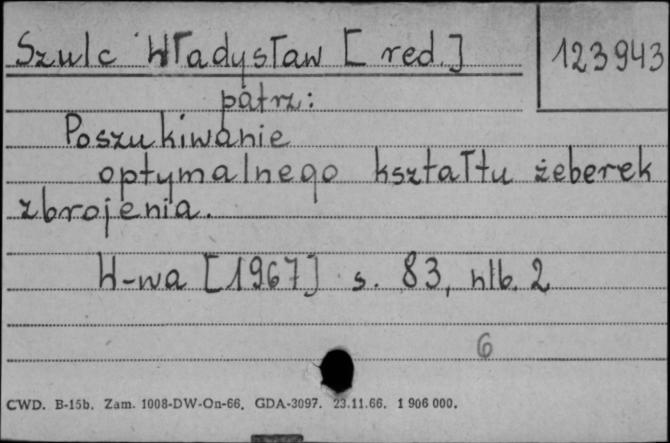 Szulc Władysław [red.]
123943
patrz:
Poszukiwanie
optymalnego kształtu żeberek
zbrojenia.
W-wa [1967] s. 83, nlb. 2
6
CWD. B-15b. Zam. 1008-DW-On-66. GDA-3097. 23.11.66. 1 906 000.